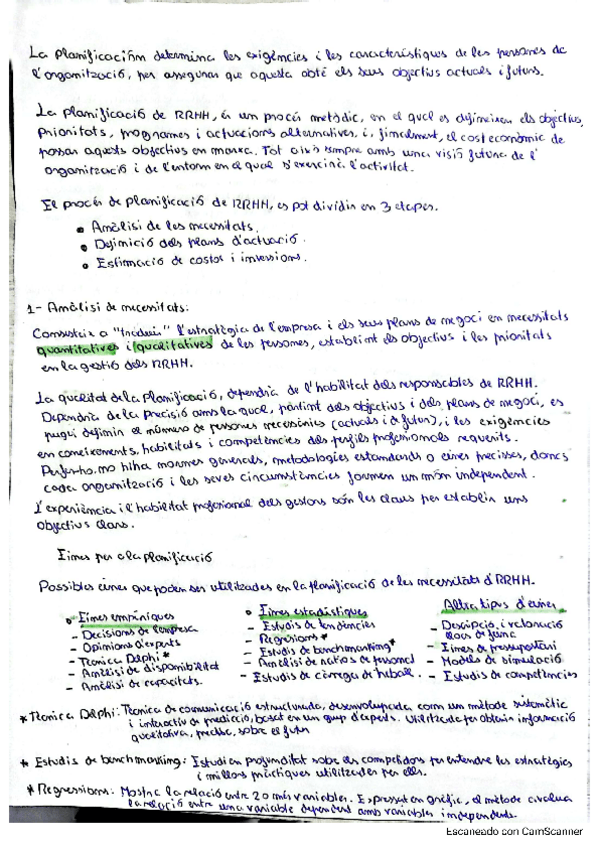 La Planificació determina les exigències i les característiques de les persones de
l'organització, per assegurar que aquesta obté els seus objectius actuals i futurs.
La Planificació de RRHH, és un procés metòdic, en el qual es defineixen els objectius,
prioritats, programes i actuacions alternatives, i, finalment, el cost econòmic de
posar aquests objectius en marxa. Tot això sempre amb una visió futura de l'
organització i de l'entorn en el qual s'exercirà l'activitat.
El procés de planificació de RRHH, es pot dividir en 3 etapes.
• Anàlisi de les necessitats.
• Definició dels plans d'actuació.
• Estimació de costos i inversions.
1- Anàlisi de necessitats:
Consisteix a "traduir" l'estratègia de l'empresa i els seus plans de negoci en necessitats
quantitatives i qualitatives de les persones, establint els objectius i les prioritats
en la gestió dels RRHH.
La qualitat de la planificació, dependrà de l'habilitat dels responsables de RRHH.
Dependrà de la precisió amb la qual, partint dels objectius i dels plans de negoci, es
pugui definir el número de persones necessàries (actuals i de futur), i les exigències
en coneixements, habilitats i competències dels perfils professionals requerits.
Per fer-ho, no hi ha normes generals, metodologies estandards o eines precisses, doncs
cada organització i les seves circumstàncies formen un món independent.
L'experiència i l'habilitat professional dels gestors són les claus per establir uns
objectius clars.
Eines per a la planificació
Possibles eines que poden ser utilitzades en la planificació de les necessitats d RRHH.
• Eines empíriques
- Decisions de l'empresa
- Opinions d'experts
- Tècnica Delphi *
- Anàlisi de disponibilitat
- Anàlisi de capacitats.
• Eines estadístiques
- Estudis de tendències
- Regresions *
- Estudis de benchmarking *
- Anàlisi de ratios de personal
- Estudis de càrrega de treball.
Altra tipus d'eines
- Descripció i valoració
llocs de feina
- Eines de pressupostari
- Models de simulació
- Estudis de competències
* Tècnica Delphi: Tècnica de comunicació estructurada, desenvolupada com un mètode sistemàtic
i interactiu de predicció, basat en un grup d'experts. Utilitzada per obtenir informació
qualitativa, precisa, sobre el futur
* Estudis de benchmarking: Estudi en profunditat sobre els competidors per entendre les estratègies
i millors pràctiques utilitzades per ells.
* Regressions: Mostra la relació entre 2 o més variables. Expressat en gràfic, el mètode avalua
la relació entre una variable dependent amb variables independents.
Escaneado con CamScanner